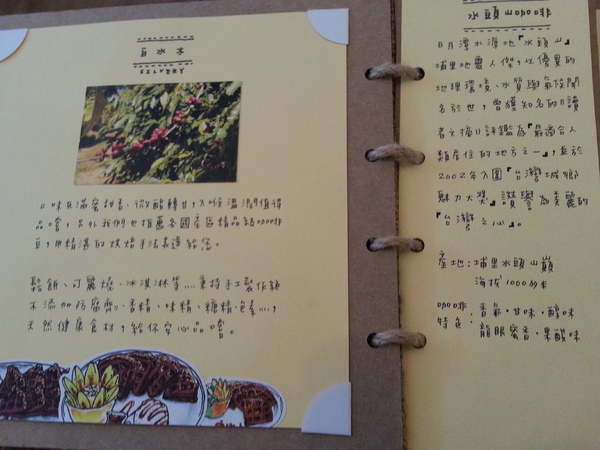 白水木
SILVERY
口味充滿蜜甜香、微酸轉甘，入喉溫潤值得
品嚐，另外我們也推薦各國產區精品級咖啡
豆，用精湛的烘焙手法表達給您。
鬆餅、可麗燒、冰淇淋等....秉持手工製作絕
不添加防腐劑、香精、味精、糖精、色素...，
天然健康食材，給你安心品嚐。
水頭山咖啡
日月潭水源地『水頭山』
埔里地靈人傑，以優異的
地理環境、水質與氣候聞
名於世，曾經知名的《讀
者文摘》評鑑為『最適合人
類居住的地方之一』，並於
2002年入圍『台灣城鄉
魅力大獎』讚譽為美麗的
『台灣之心』。
產地：埔里水頭山巔
海拔1000公尺
咖啡特色：香氣・甘味・醇味
龍眼蜜香・果酸味